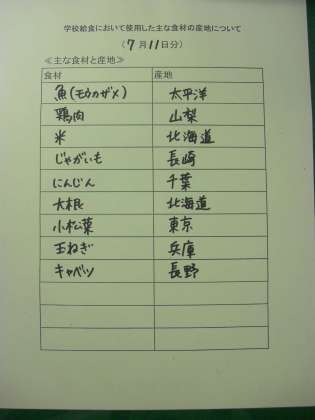 学校給食において使用した主な食材の産地について
(7月11日分)
≪主な食材と産地≫
食材 産地
魚(モウカザメ) 太平洋
鶏肉 山梨
米 北海道
じゃがいも 長崎
にんじん 千葉
大根 北海道
小松菜 東京
玉ねぎ 兵庫
キャベツ 長野